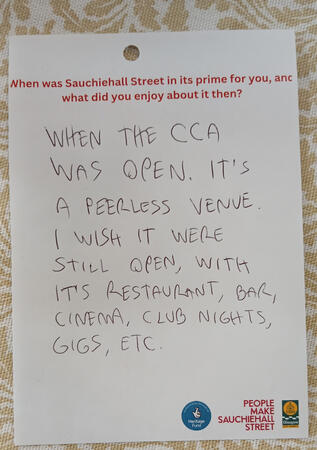 When was Sauchiehall Street in its prime for you, and
what did you enjoy about it then?
WHEN THE CCA
WAS OPEN. IT'S
A PEERLESS VENUE.
I WISH IT WERE
STILL OPEN, WITH
IT'S RESTAURANT, BAR,
CINEMA, CLUB NIGHTS,
GIGS, ETC.
Heritage
Fund
PEOPLE
MAKE
SAUCHIEHALL
STREET